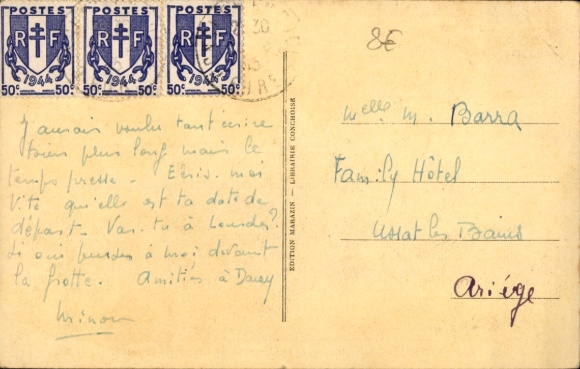 POSTES POSTES POSTES
RF RF RF
1944 1944 1944
50c 50c 50c 50c 50c 50c
30
8€
J'aurais voulu tant écrire
bien plus long mais le
temps presse. Ecris-moi
vite qu'elle est ta date de
départ. Vas-tu à Lourdes?
Si oui penses à moi devant
la grotte. Amitiés à Dany
EDITION MARAZIN - LIBRAIRIE CONCHOISE
Melle M. Barra
Family Hôtel
Ussat les Bains
Ariége